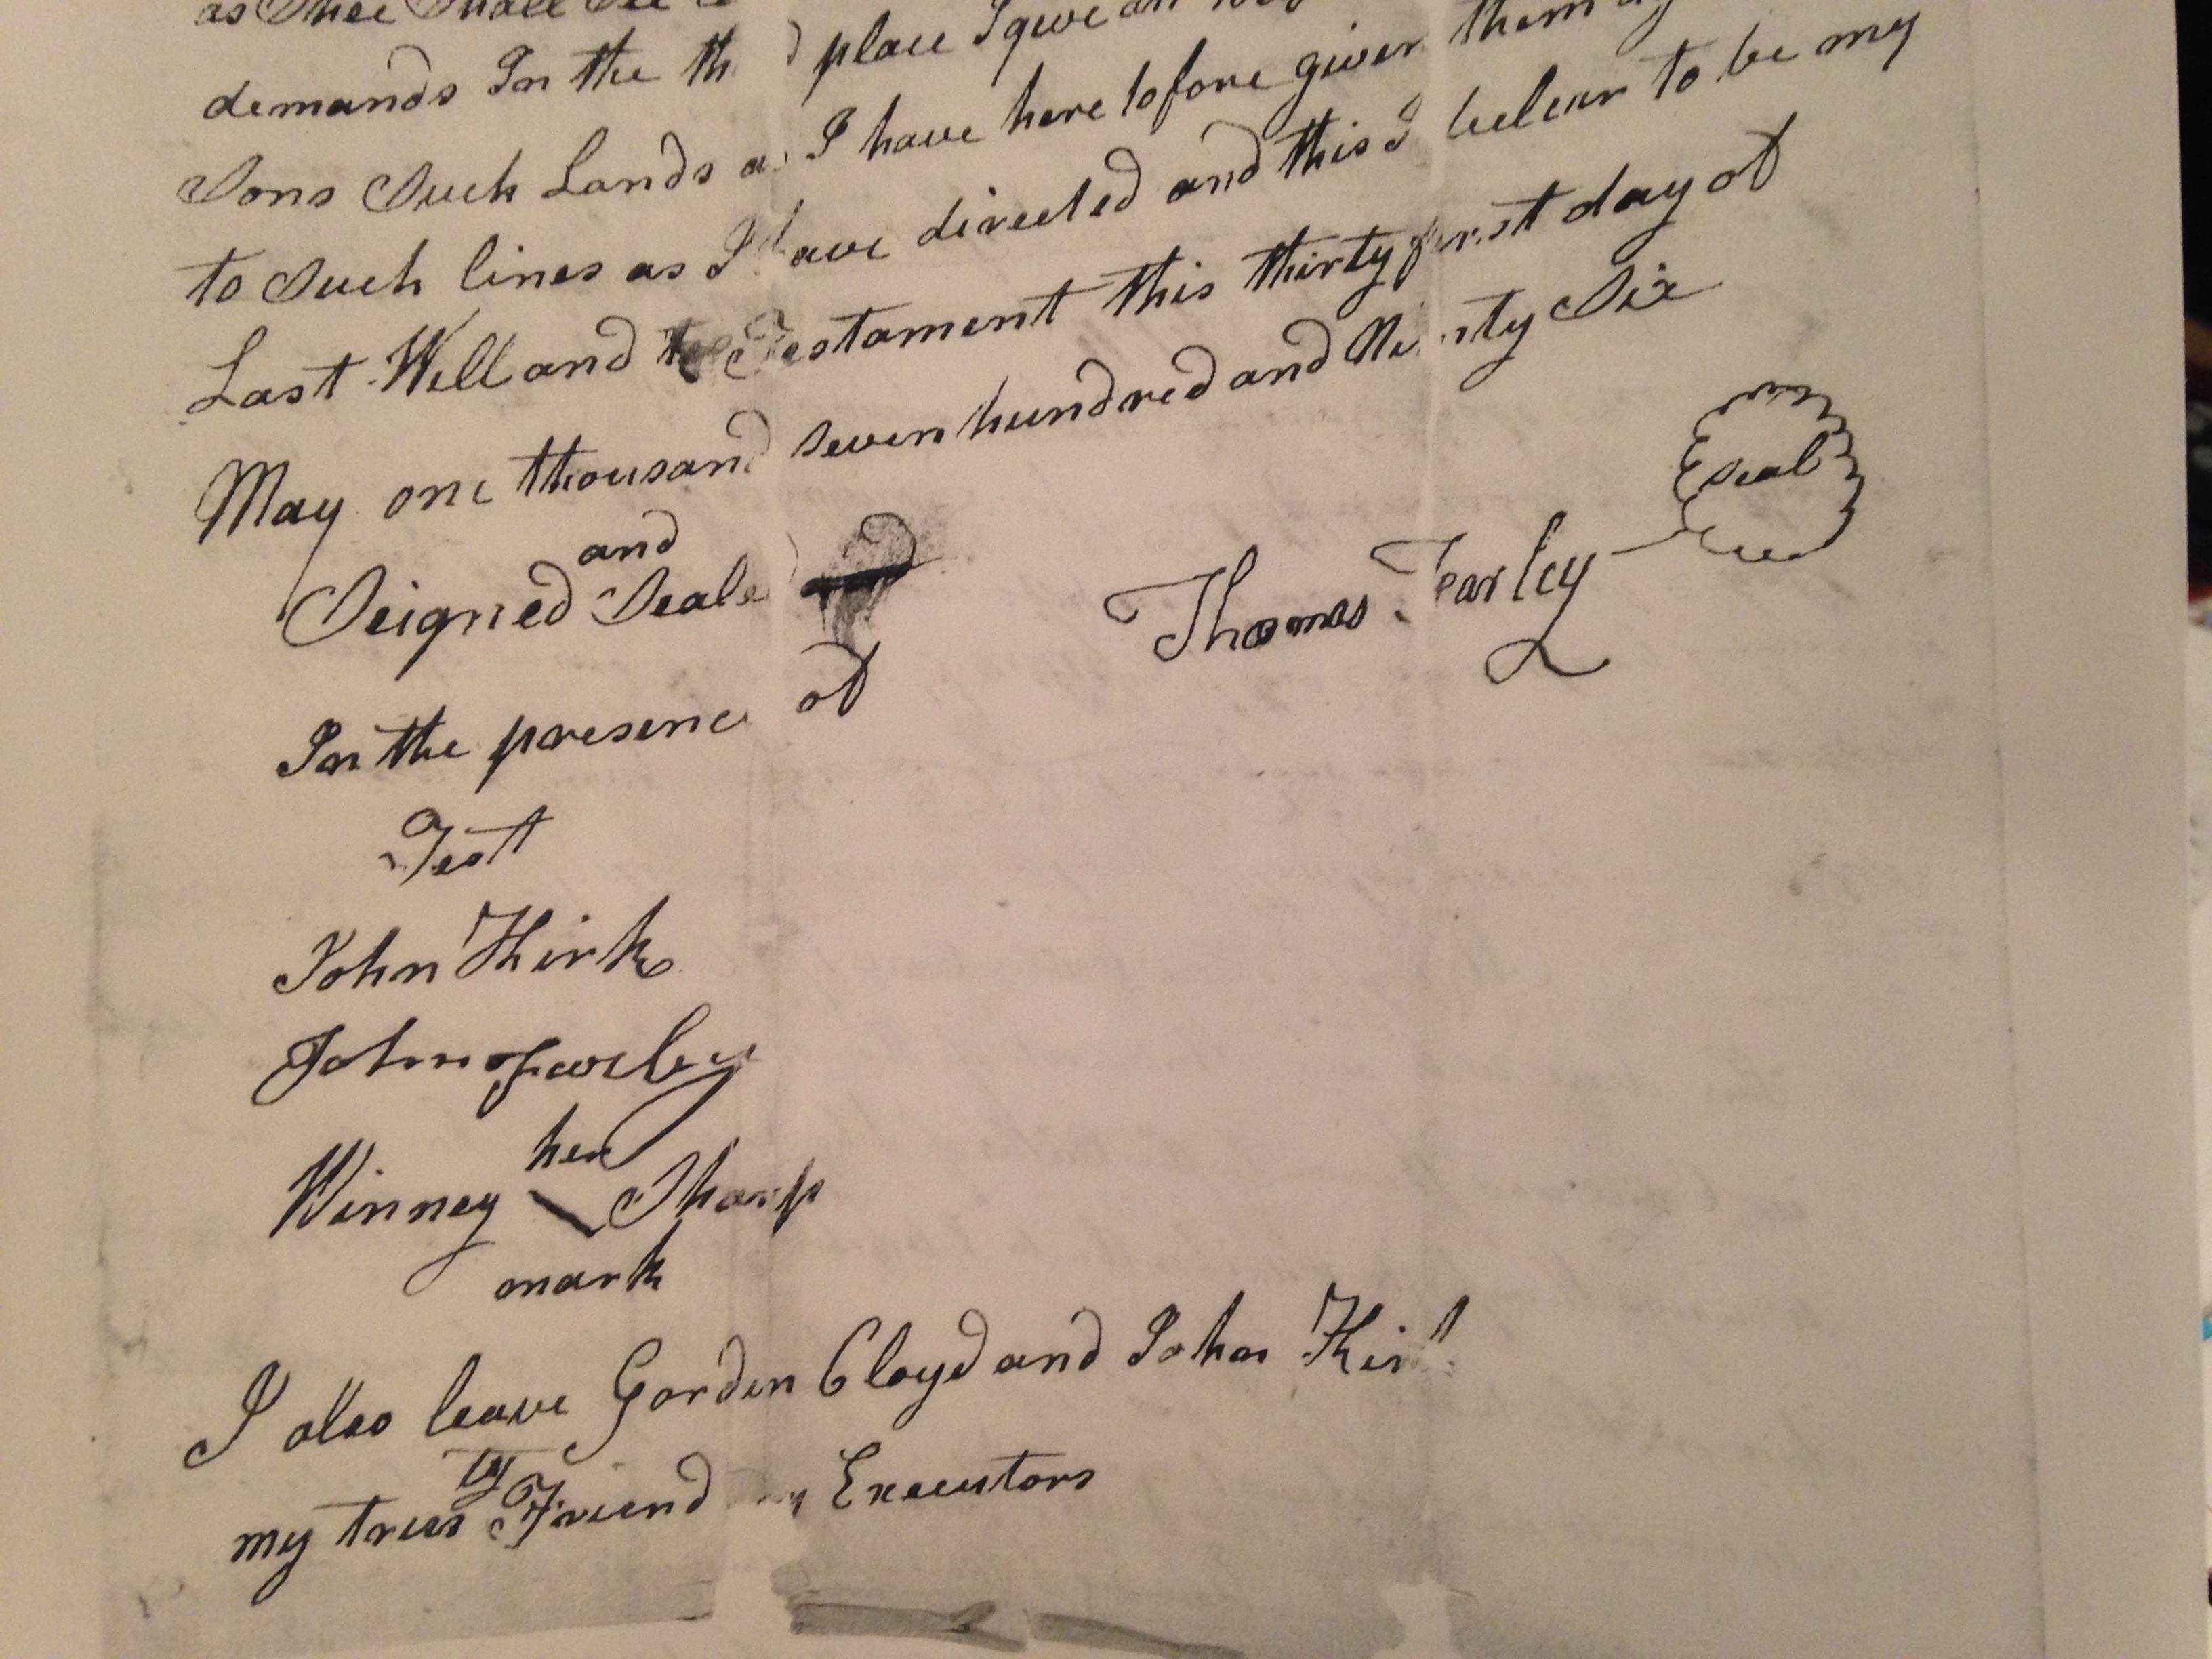 as Shee Shall
demands In the place I give
Sons Such Lands as I have here tofore given them
to Such lines as I have directed and this I
Last Will and Testament this thirty first day of
May one thousand seven hundred and Ninty Six
and
Seigned Seale
Seal
Thomas Farley
In the presence of
Test
John Kirk
John Farley
her
Winney Sharp
mark
I also leave Gorden Cloyd and John Kirk
ty
my trus Friend my Executors